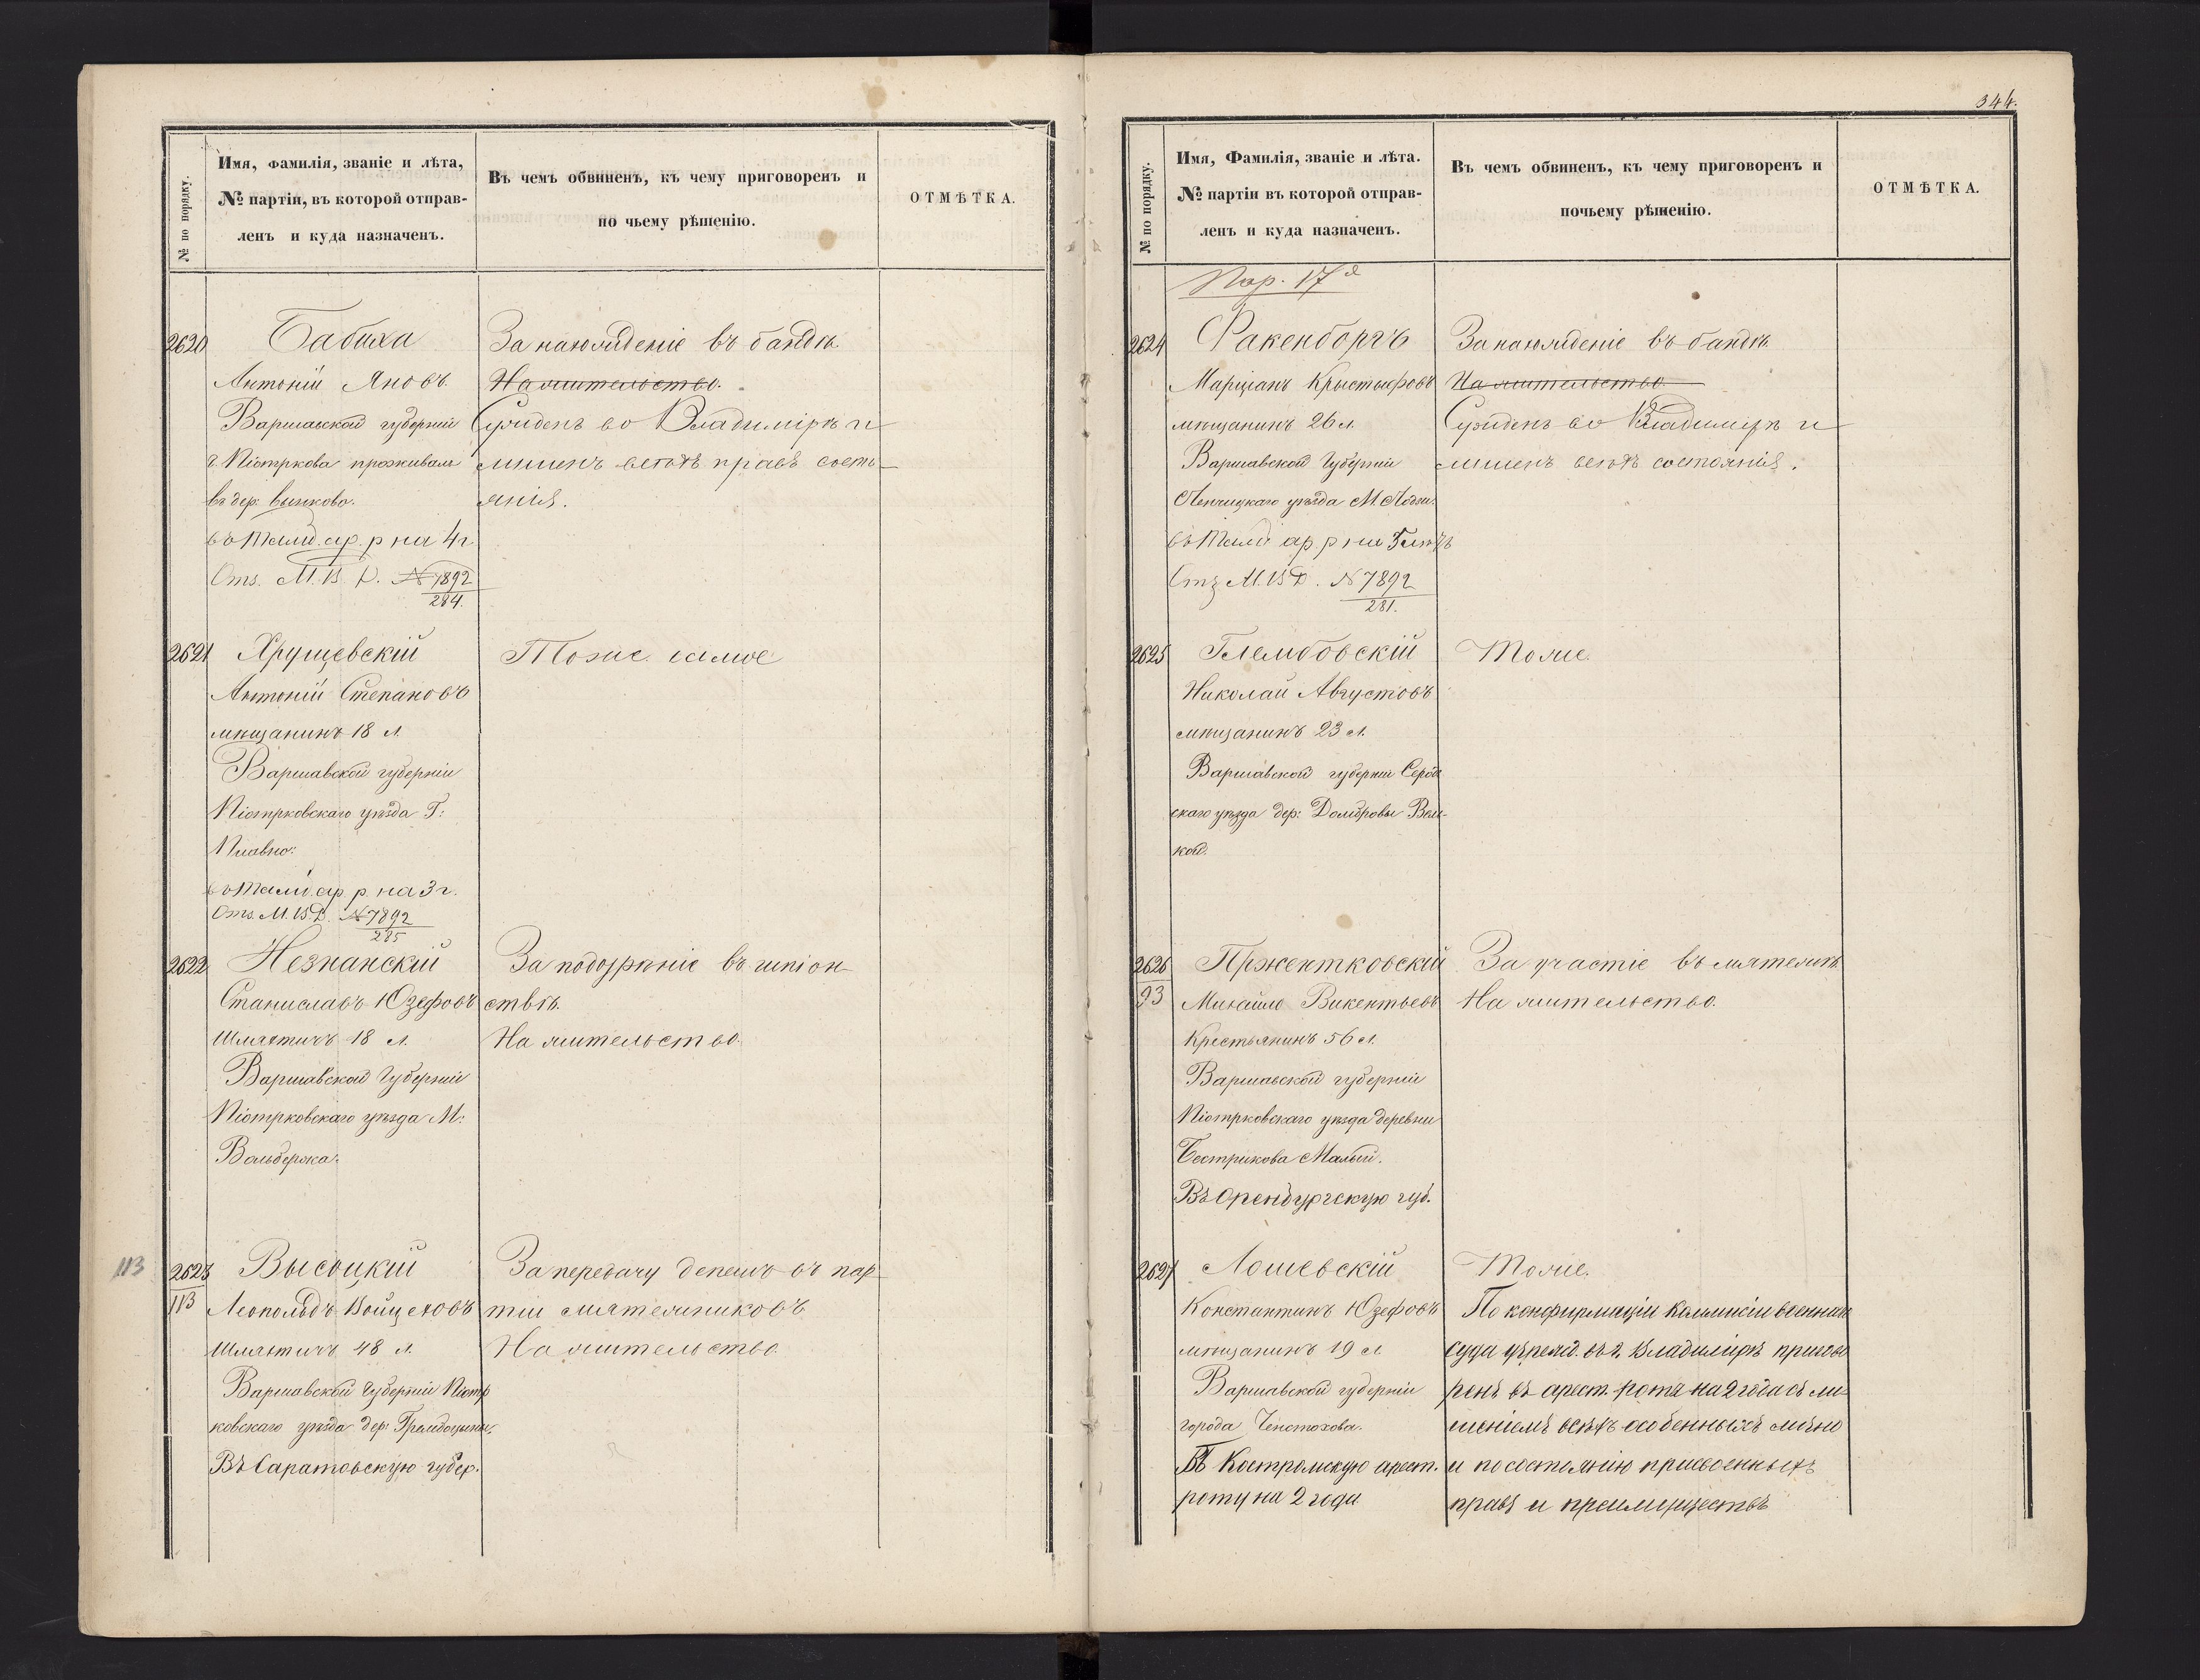 № по порядку.
Имя, Фамилія, званіе и лѣта,
№ партіи, въ которой отправ-
ленъ и куда назначенъ.
Въ чемъ обвиненъ, къ чему приговоренъ и
по чьему рѣшенію.
ОТМѢТКА.
2620
Бабиха
Антоній Яновъ
Варшавской губерніи
г. Піотркова проживалъ
въ дер:
въ Тамб. ар. р на 4 г
Отз. М. В. Д. № 7892
284.
За нахожденіе въ бандѣ
На жительство.
Сужденъ во Владимірѣ и
лишенъ всѣхъ правъ состо-
янія.
2621
Хрущевскій
Антоній Степановъ
мѣщанинъ 18 л.
Варшавской губерніи
Піотрковскаго уѣзда Г:
Плавно:
въ Тамб. ар р на 3 г.
Отз. М. В. Д. № 7892
285
Тоже самое
2622
Незнанскій
Станиславъ Юзефовъ
Шляхтичъ 18 л.
Варшавской Губерніи
Піотрковскаго уѣзда М:
Вольборжа:
За подозрѣніе въ шпіон-
ствѣ.
На жительство.
113
2623
113
Высоцкій
Леопольдъ Войцеховъ
Шляхтичъ 48 л.
Варшавской Губерніи Піотр
ковскаго уѣзда дер:
Въ Саратовскую губер.
За передачу депешъ въ пар-
тіи мятежниковъ
На жительство.
344.
№ по порядку.
Имя, Фамилія, званіе и лѣта.
№ партіи въ которой отправ-
ленъ и куда назначенъ.
Въ чемъ обвиненъ, къ чему приговоренъ и
почьему рѣшенію.
ОТМѢТКА.
Пар. 17я
2624
Факенборгъ
Марціанъ Крыстыфовъ
мѣщанинъ 26 л.
Варшавской Губерніи
Ленчицкаго уѣзда М. Лодзи.
въ Тамб ар р на 5 лѣтъ
Отз М. В Д. № 7892
281.
За нахожденіе въ бандѣ
На жительство
Сужденъ во Владимірѣ и
лишенъ всѣхъ состоянія.
2625
Глембовскій
Николай Августовъ
мѣщанинъ 23 л.
Варшавской губерніи Серад
скаго уѣзда дер: Домбровы Вели-
кой.
Тоже.
2626
93
Пржентковскій
Михайло Викентьевъ
Крестьянинъ 56 л.
Варшавской губерніи
Піотрковскаго уѣзда деревни
Бестрикова Малый.
Въ Оренбургскую губ.
За участіе въ мятежѣ
На жительство.
2627
Лошевскій
Константинъ Юзефовъ
мѣщанинъ 19 л.
Варшавской губерніи
города Ченстохова.
Въ Костромскую арест.
роту на 2 года
Тоже.
По конфирмаціи Коммисіи военнаго
суда учрежд. въ г. Владимірѣ пригово
ренъ въ арест. роты на 2 года съ ли-
шеніемъ всѣхъ особенныхъ лично
и по состоянію присвоенныхъ
правъ и преимуществъ